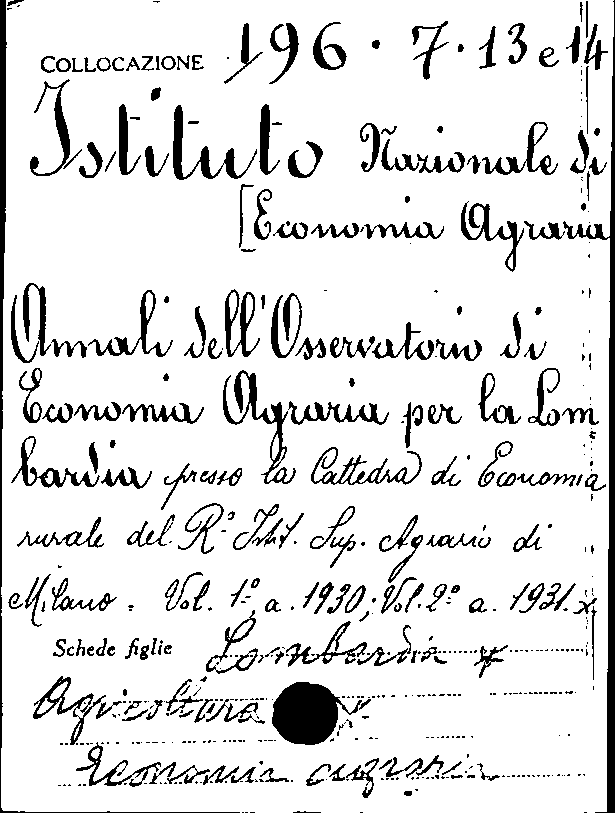 COLLOCAZIONE 196 · 7 · 13 e 14
Istituto Nazionale di
[Economia Agraria
Annali dell'Osservatorio di
Economia Agraria per la Lom
bardia presso la Cattedra di Economia
rurale del R.º Istit. Sup. Agrario di
Milano. Vol. 1º a. 1930; Vol. 2º a. 1931. x
Schede figlie Lombardia x
Agricoltura x
Economia agraria